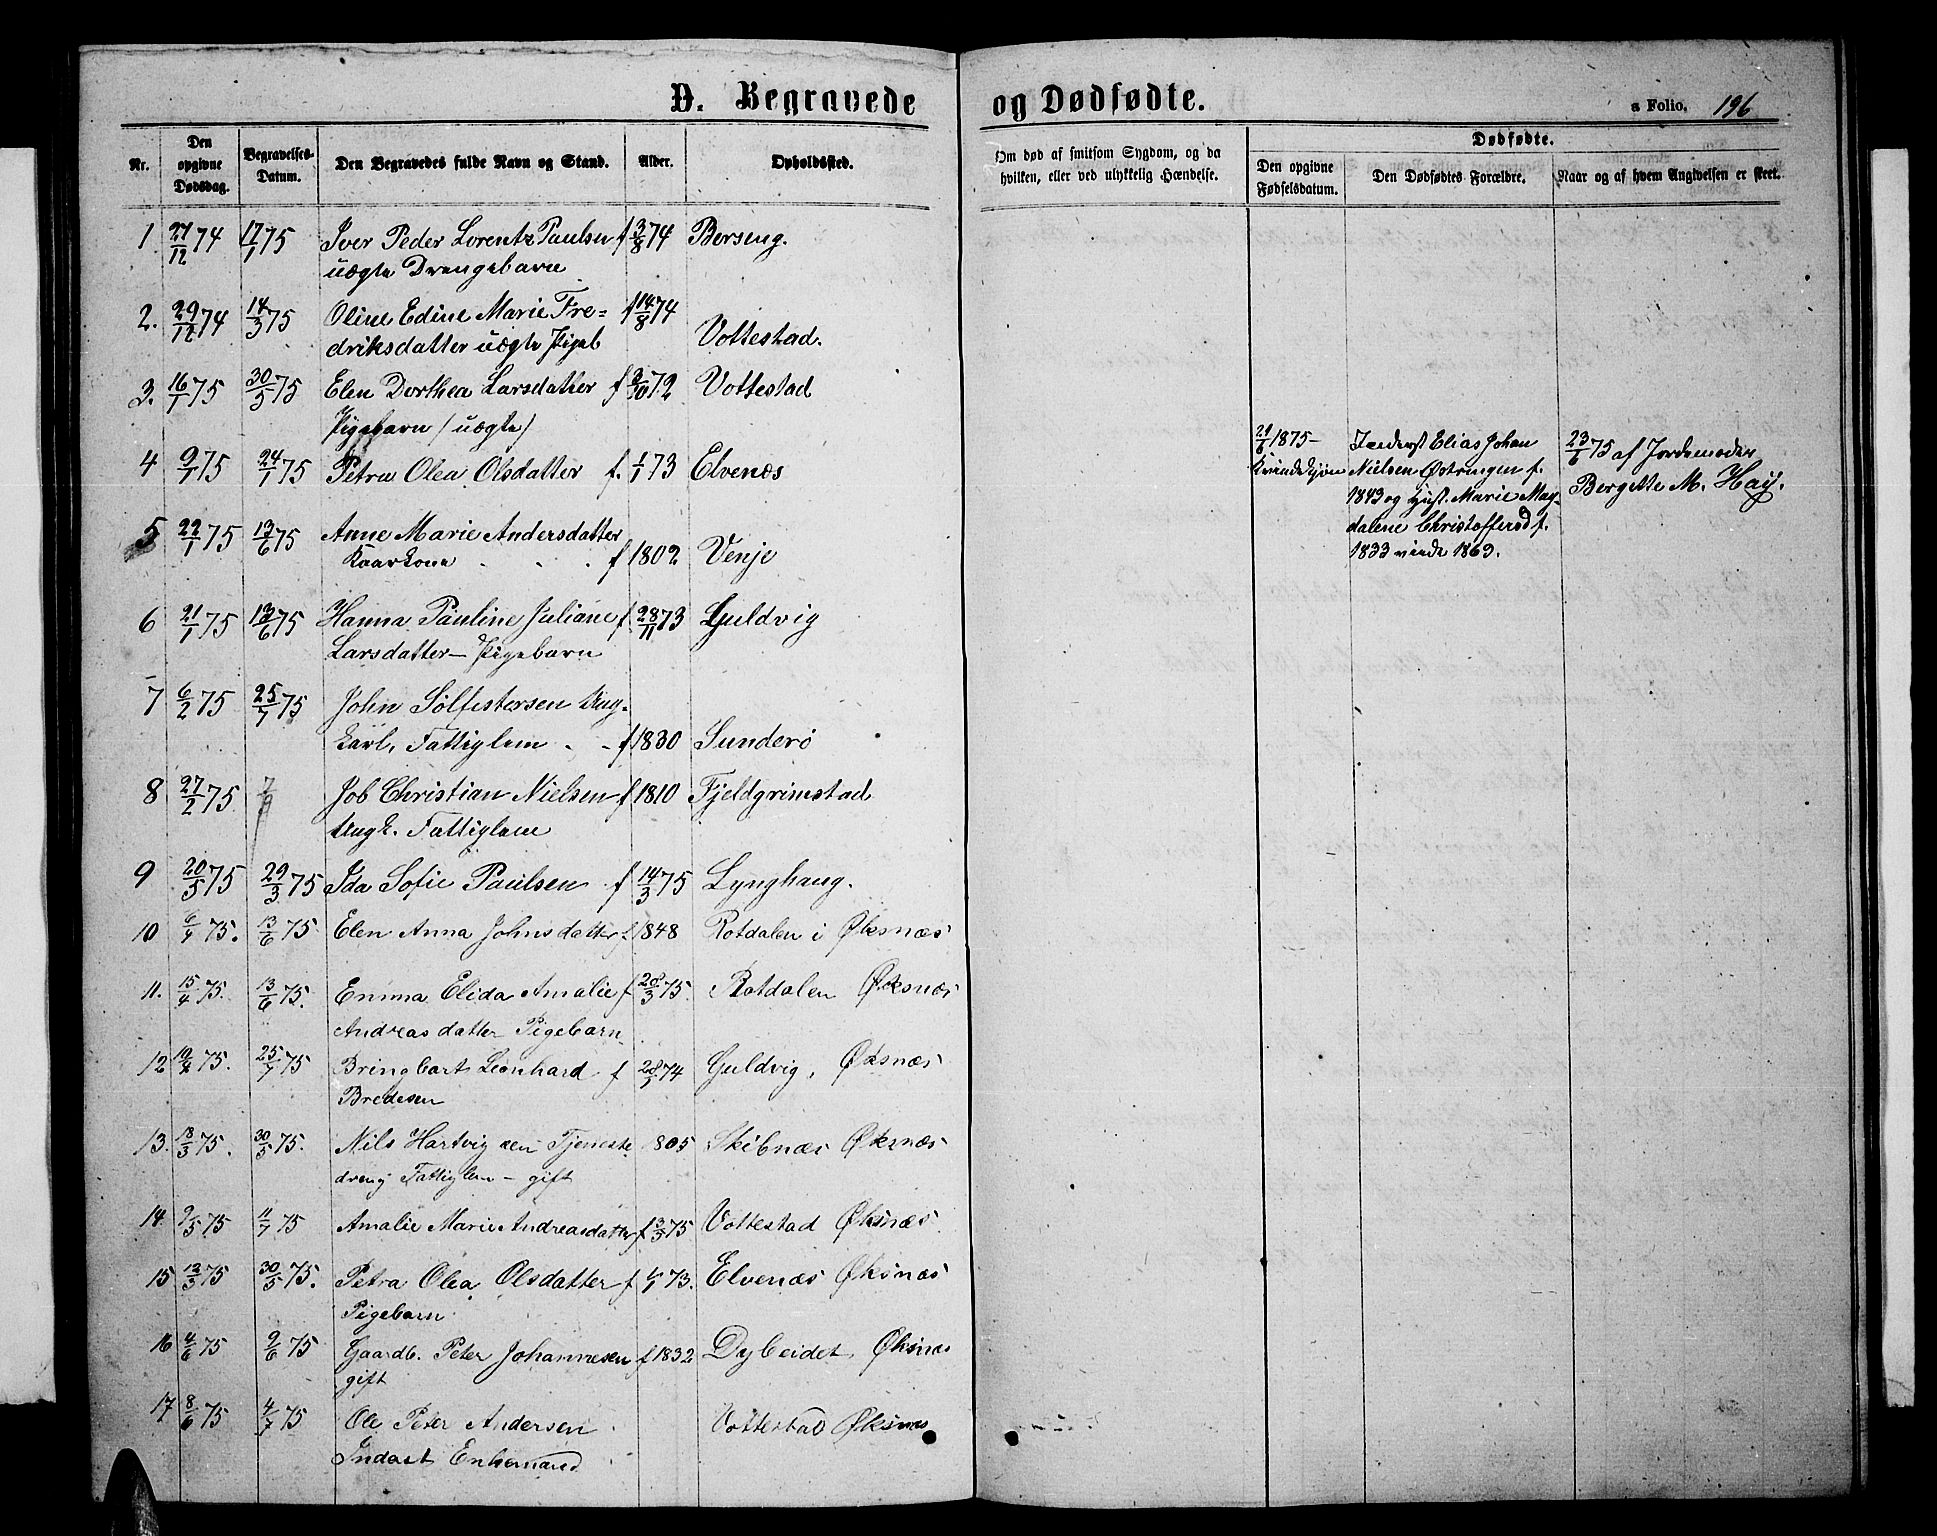 D. Begravede og Dødfødte.
a Folio. 196
Nr. Den opgivne Dødsdag. Begravelses-Datum. Den Begravedes fulde Navn og Stand. Alder. Opholdssted.
Om død af smitsom Sygdom, og da hvilken, eller ved ulykkelig Hændelse.
Dødfødte.
Den opgivne Fødselsdatum. Den Dødfødtes Forældre. Naar og af hvem Angivelsen er skeet.
1. 27/12 74 17/1 75 Iver Peder Lorentz Paulsen f 3/8 74 Borseng.
uægte Drengebarn
2. 29/12 74 14/3 75 Oline Edine Marie Fre= f 14/8 74
driksdatter uægte Pigeb Vottestad.
3. 16/1 75 30/5 75 Elen Dorthea Larsdatter f 3/10 72 Vottestad
Pigebarn (uægte)
4 9/1 75 24/1 75 Petra Olea Olsdatter f. 1/1 73 Elvenæs
5 22/1 75 13/6 75 Anne Marie Andersdatter
Kaarkone . . . f 1802 Venje
6 21/1 75 13/6 75 Hanna Pauline Juliane f 28/11 73 Guldvig
Larsdatter – Pigebarn
7 6/2 75 25/7 75 John Solfestersen Ung-
karl, Fattiglem . - f 1830 Sunderø
8 27/2 75 Job Christian Nielsen f 1810 Fjeldgrimstad
Ungk. Fattiglem
9 20/5 75 29/3 75 Ida Sofie Paulsen f 14/3 75 Lynghaug.
10 6/4 75. 13/6 75 Elen Anna Johnsdatter f. 1848 Rotdalen i Øksnæs
11. 15/4 75. 13/6 75. Emma Elida Amalie f 28/3 75. Rotdalen Øksnæs
Andreasdatter Pigebarn
12 19/4 75. 25/7 75 Bringbart Leonhard f 28/1 74 Guldvig, Øksnæs
Bredesen
13. 18/3 75. 30/5 75. Nils Hartvig Tjeneste 805 Skibnæs Øksnæs
dreng Fattiglem – gift
14 9/5 75 11/7 75 Amalie Marie Andreasdatter f 3/5 75 Vottestad Øksnæs
15 12/3 75 30/5 75. Petra Olea Olsdatter f 1/1 73. Elvenæs Øksnæs
Pigebarn
16 4/6 75 9/6 75 Gaardb. Peter Johannesen f 1832 Dybeidet Øksnæs
gift
17 8/6 75 4/7 75 Ole Peter Andersen Vottestad Øksnæs
Inderst Enkemand
1875– Kvindekjøn
Inderst Elias Johan
Nielsen Østringen f.
1843 og Hust. Marie Mag-
dalene Christoffersd f.
1833 viede 1863.
23/6 75 af Jordemoder
Bergette M. Hay.